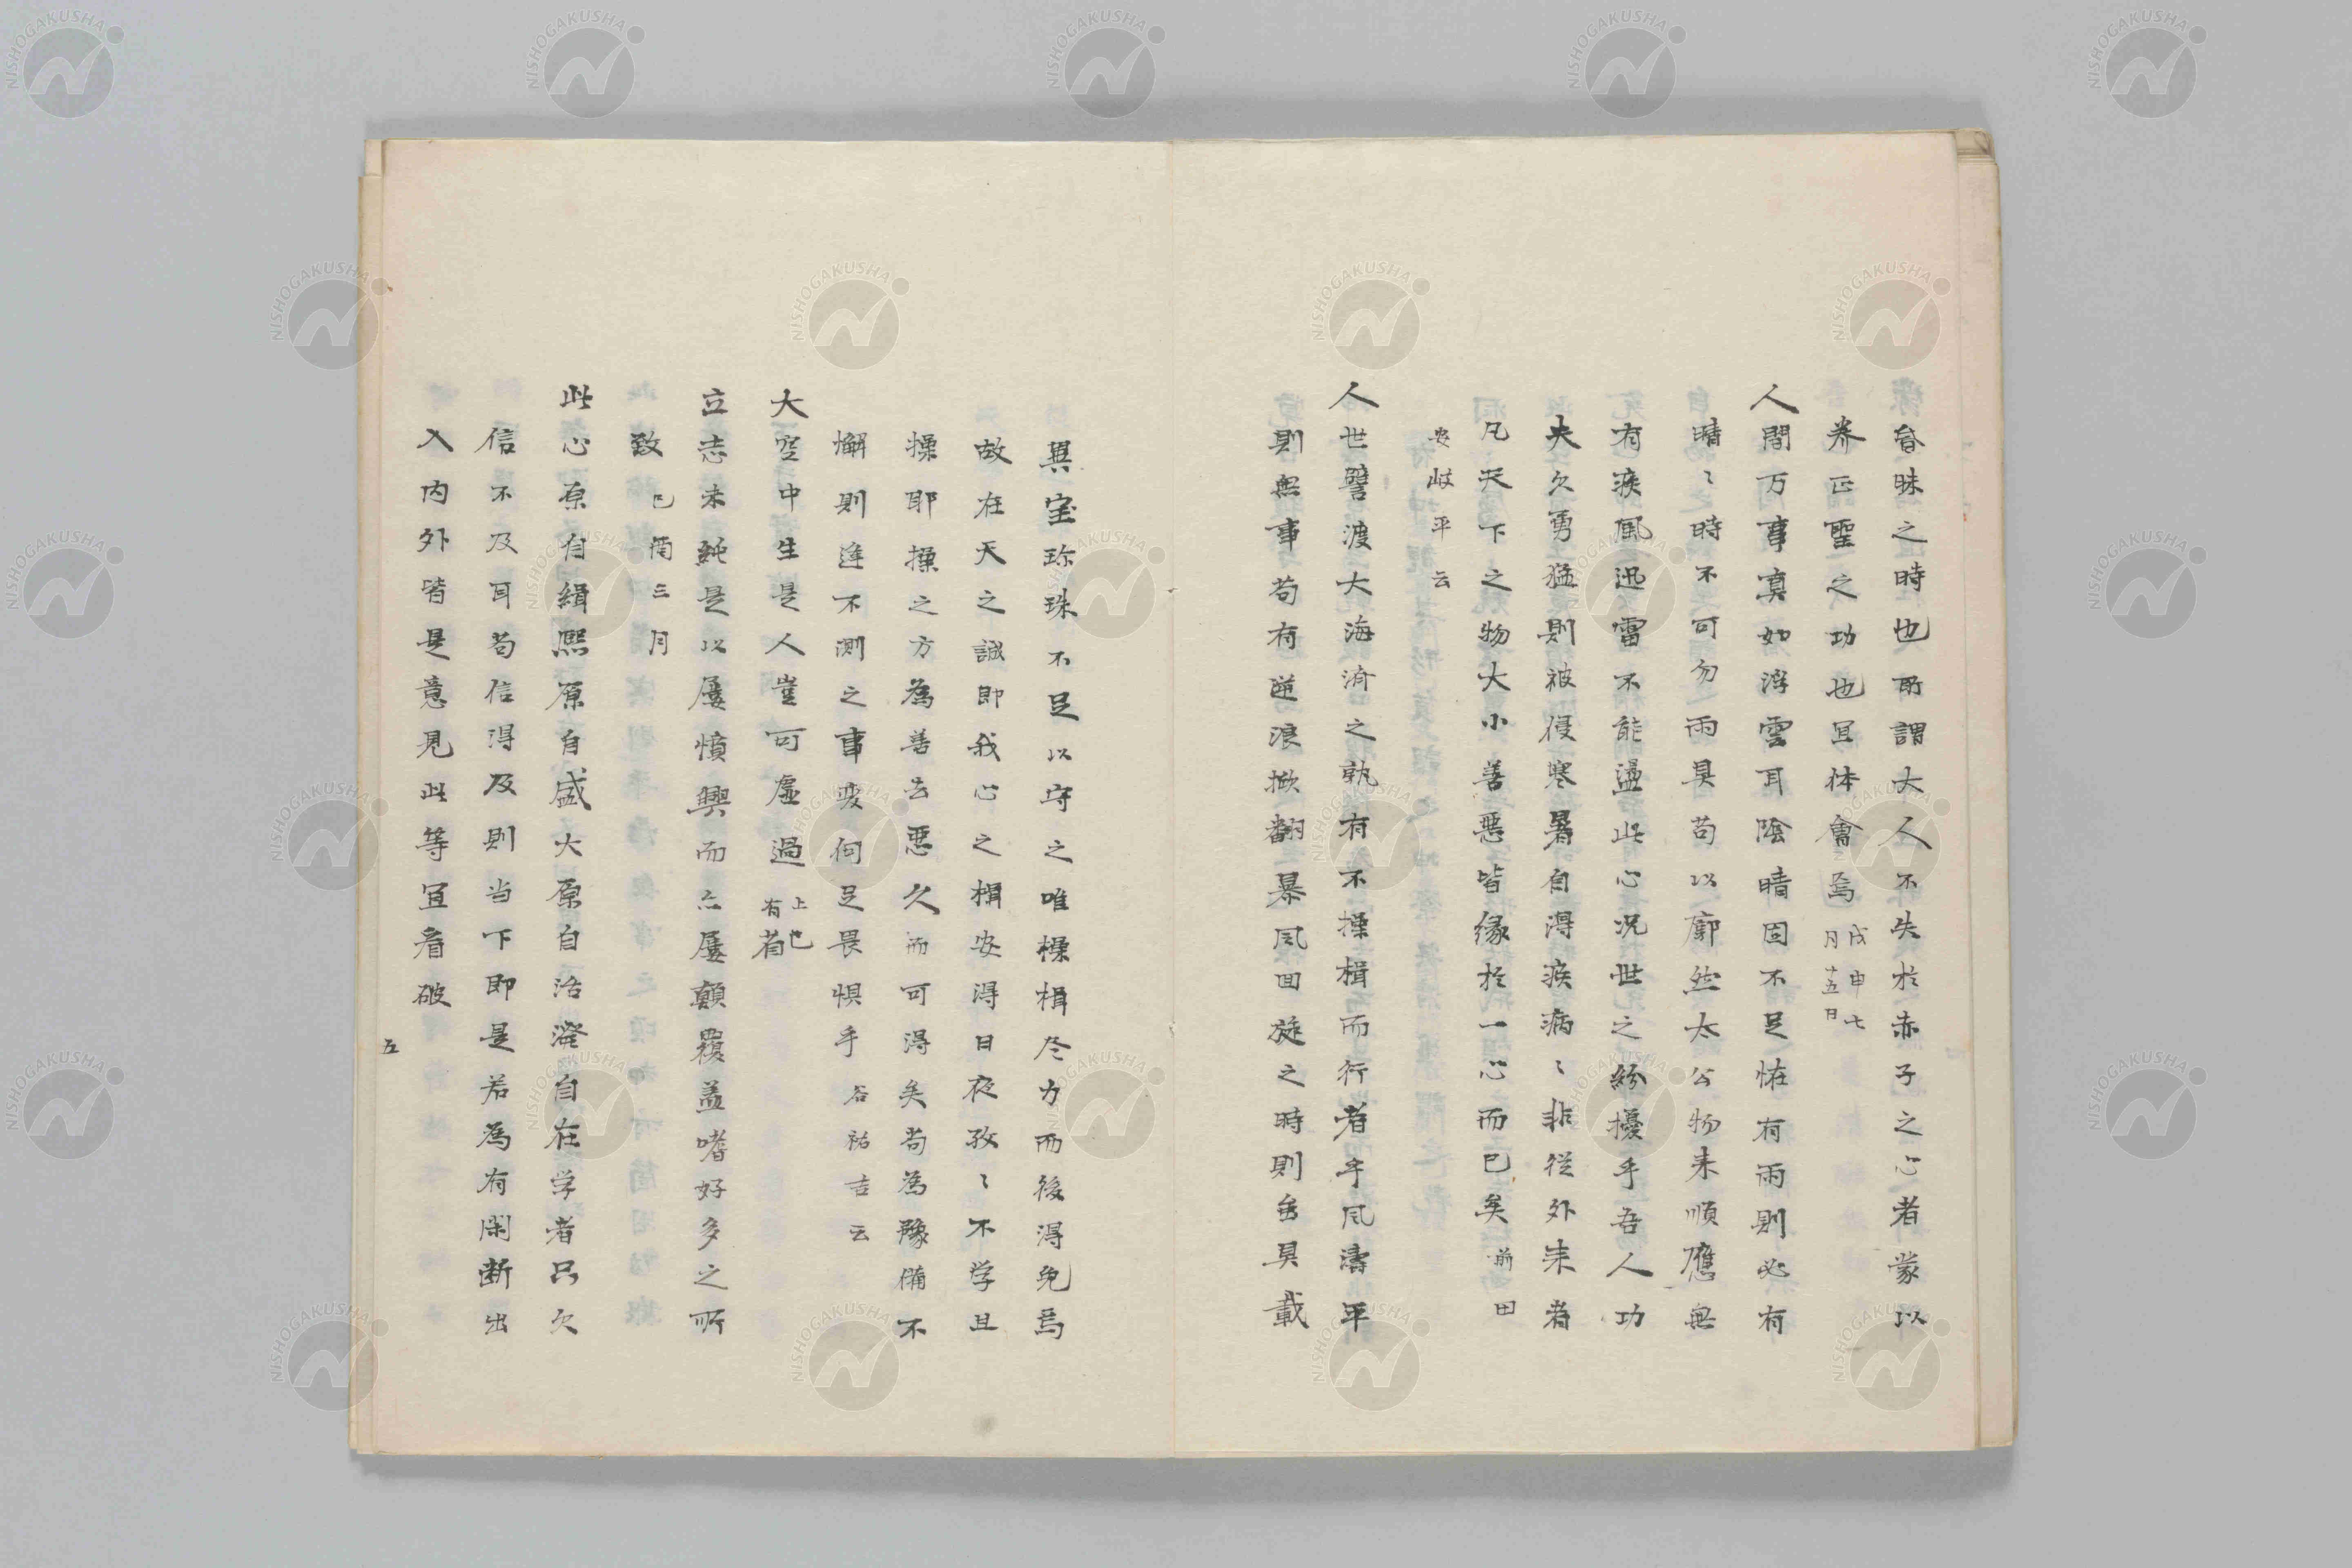 昏昧之時也所謂大人不失於赤子之心者蒙以
養正聖之功也宜体會焉 戊申七月十五日
人間万事真如浮雲耳陰晴固不足怪有雨則必有
晴〻時不可勿雨具苟以廓然太公物来順應無
有疾風迅雷不能盪此心況世之紛擾乎吾人功
夫欠勇猛則被侵寒暑自得疾病〻非從外来者
凡天下之物大小善悪皆縁於一心而已矣 前田
安岐平云
人世譬渡大海済之孰有不操楫而行者乎風濤平
則無事苟有逆浪掀翻暴風回旋之時則無具載
異宝珍珠不足以守之唯操楫尽力而後得免焉
故在天之誠即我心之楫安得日夜孜〻不学且
操耶操之方為善去悪久而可得矣苟為豫備不
懈則逢不測之事変何足畏惧乎 谷祐吉云
大空中生是人豈可虚過 上巳有省
立志未純是以屡憤興而亦屡顛覆盖嗜好多之所
致 己酉三月
此心原自緝熙原自盛大原自活溌自在学者只欠
信不及耳苟信得及則当下即是若為有間断出
入内外皆是意見此等宜看破
五
NISHOGAKUSHA